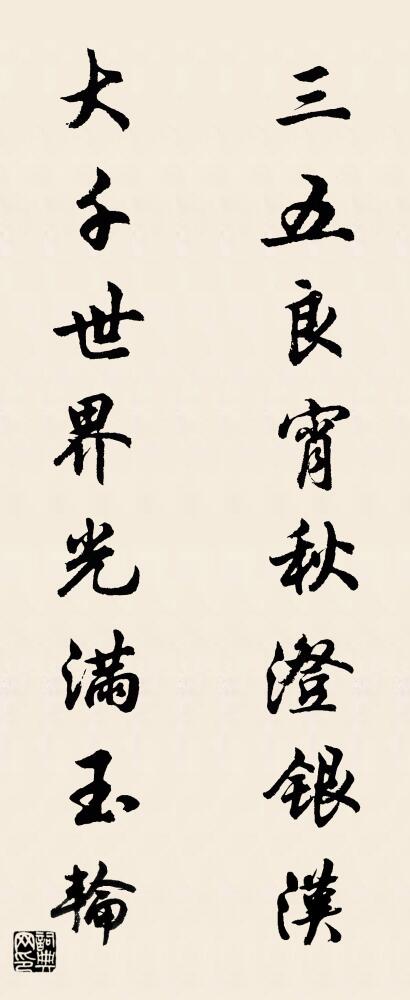 三五良宵秋澄銀漢
大千世界光滿玉輪
詞典网印